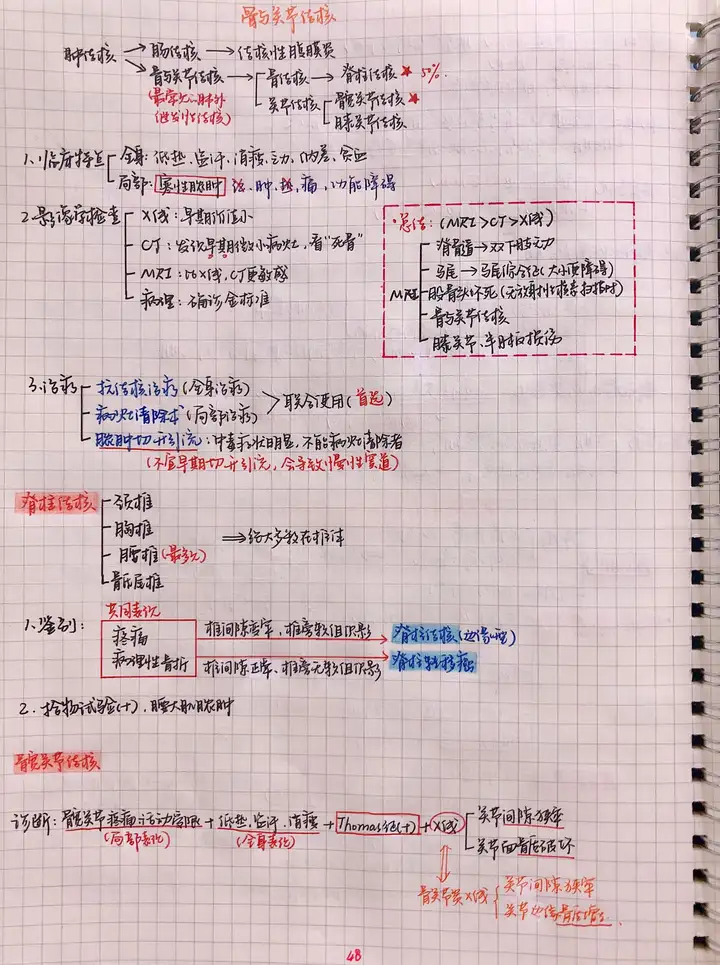 骨与关节结核
肺结核 → 肠结核 → 结核性腹膜炎
→ 骨与关节结核 → 骨结核 → 脊柱结核 ★ 50%.
(最常见的肺外继发性结核)
关节结核 髋关节结核 ★
膝关节结核
1.临床特点 全身: 低热、盗汗、消瘦、乏力、纳差、贫血
局部: 寒性脓肿 红、肿、热、痛、功能障碍
2.影像学检查 X线: 早期价值小
CT: 发现早期微小病灶, 看"死骨"
MRI: 比X线, CT更敏感
病理: 确诊金标准
·总结: (MRI>CT>X线)
MRI 脊髓 → 双下肢无力
马尾 → 马尾综合征(大小便障碍)
股骨头坏死 (无放射性核素扫描时)
骨与关节结核
膝关节、半月板损伤
3.治疗 抗结核治疗 (全身治疗)
病灶清除术 (局部治疗) > 联合使用 (首选)
脓肿切开引流: 中毒症状明显, 不能病灶清除者
(不宜早期切开引流, 会导致慢性窦道)
脊柱结核 颈椎
胸椎
腰椎 (最多见) ⟹ 绝大多数在椎体
骶尾椎
共同表现
1.鉴别: 疼痛 椎间隙变窄, 椎旁软组织影 → 脊柱结核
病理性骨折 椎间隙正常, 椎旁无软组织影 → 脊柱转移癌
2.拾物试验(+), 腰大肌脓肿
髋关节结核
诊断: 髋关节疼痛活动受限 + 低热、盗汗、消瘦 + Thomas征(+) + X线 关节间隙狭窄
(局部表现) (全身表现) 关节面骨质破坏
骨关节炎X线 关节间隙狭窄
关节边缘骨质增生.
48